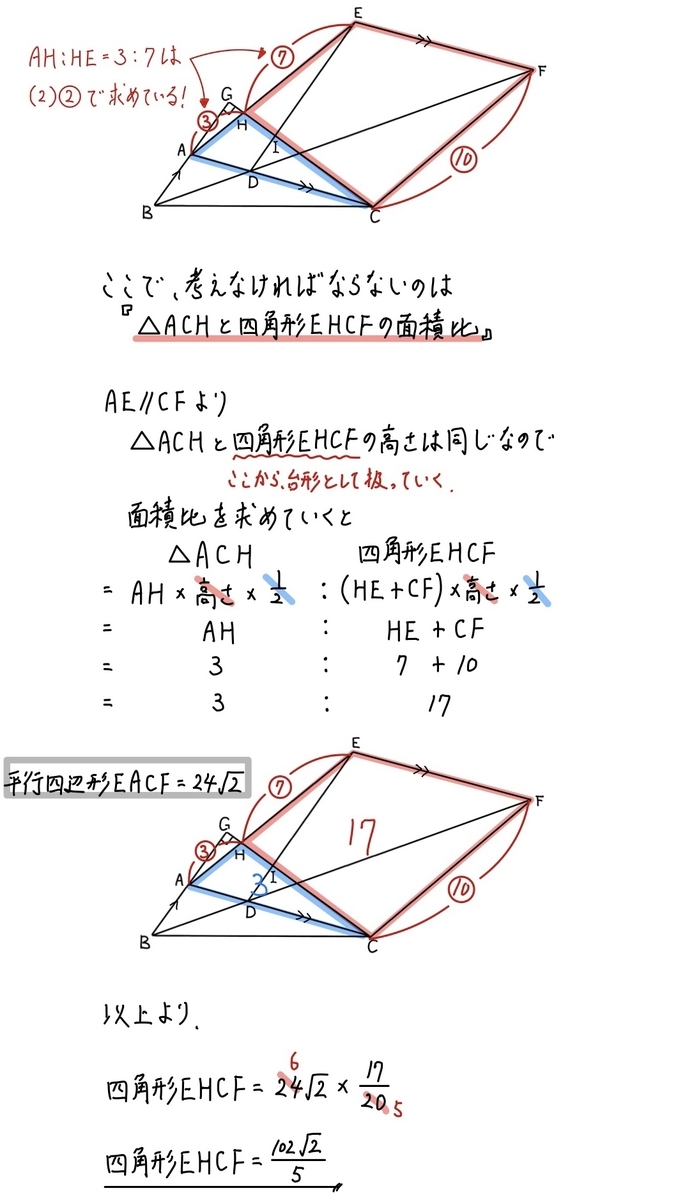 E
AH:HE=3:7は
⑦
F
(2)②で求めている!
G
③
H
A
I
⑩
D
B
C
ここで、考えなければならないのは
『△ACHと四角形EHCFの面積比』
AE//CFより
△ACHと四角形EHCFの高さは同じなので
ここから、台形として扱っていく.
面積比を求めていくと
△ACH 四角形EHCF
= AH × 高さ × 1/2 : (HE+CF)×高さ × 1/2
= AH : HE + CF
= 3 : 7 + 10
= 3 : 17
E
平行四辺形EACF=24√2
⑦
F
17
G
③
H
A
3
I
⑩
D
B
C
以上より.
6
四角形EHCF = 24√2 × 17/20
5
四角形EHCF = 102√2/5